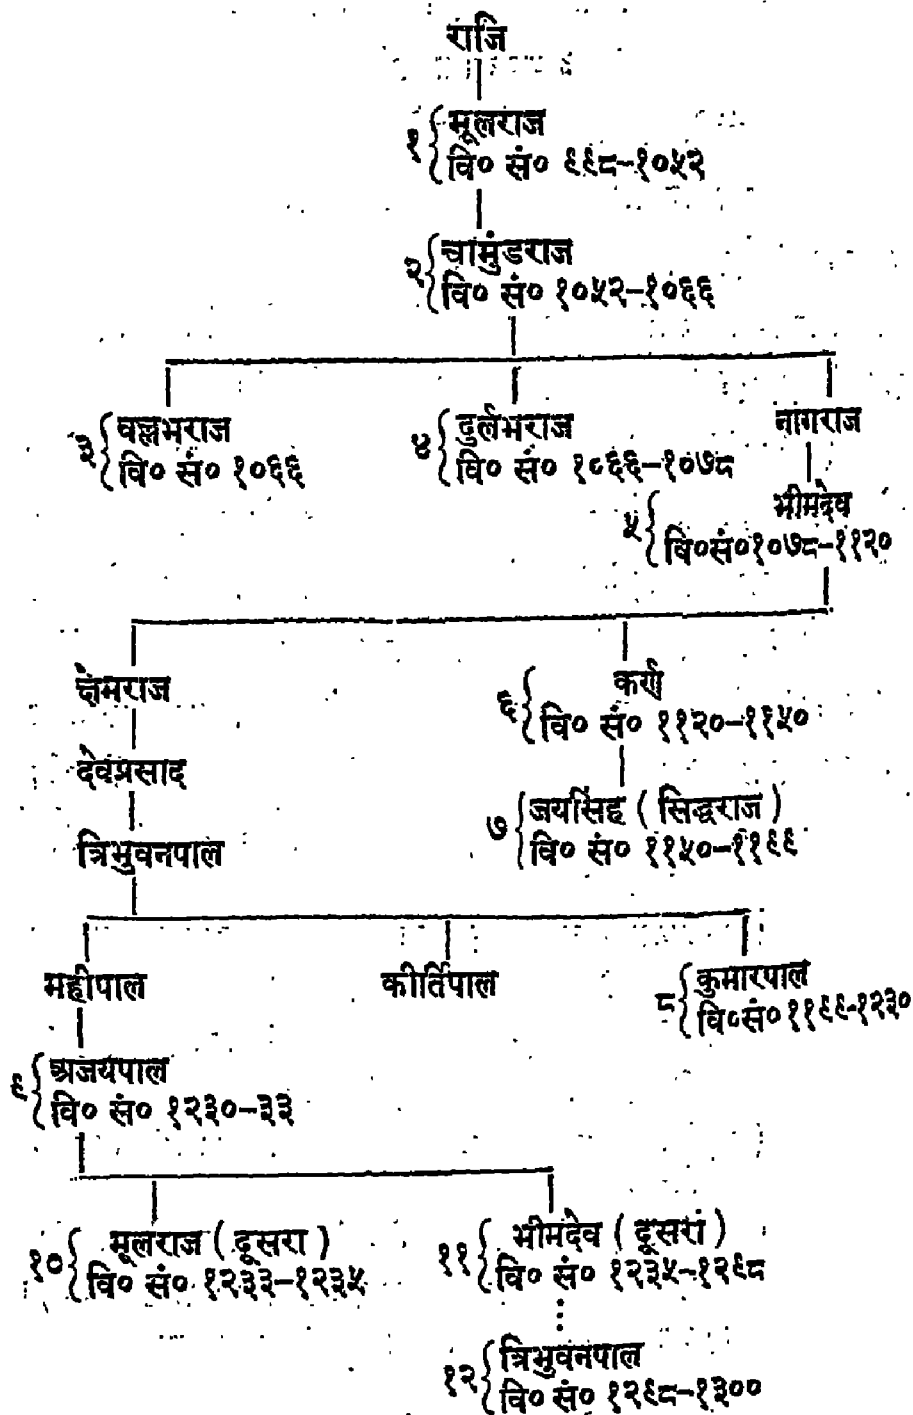 राजि
१ { मूलराज
वि० सं० ९९८-१०५२
२ { चामुंडराज
वि० सं० १०५२-१०६६
३ { वल्लभराज
वि० सं० १०६६
४ { दुर्लभराज
वि० सं० १०६६-१०७८
नागराज
५ { भीमदेव
वि०सं०१०७८-११२०
क्षेमराज
देवप्रसाद
त्रिभुवनपाल
६ { कर्ण
वि० सं० ११२०-११५०
७ { जयसिंह ( सिद्धराज )
वि० सं० ११५०-११९९
महीपाल
कीर्तिपाल
८ { कुमारपाल
वि०सं०११९९-१२३०
९ { अजयपाल
वि० सं० १२३०-३३
१० { मूलराज ( दूसरा )
वि० सं० १२३३-१२३५
११ { भीमदेव ( दूसरा )
वि० सं० १२३५-१२९८
१२ { त्रिभुवनपाल
वि० सं० १२९८-१३००